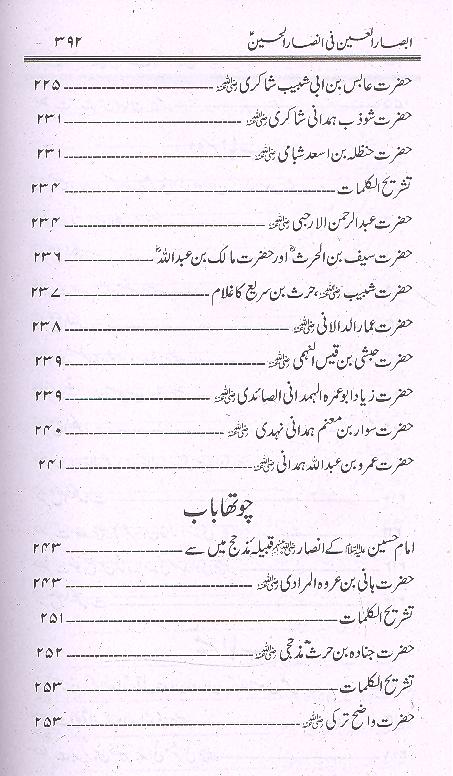 ابصار العین فی انصار الحسینؑ ۳۹۲
حضرت عابس بن ابی شبیب شاکری رضی اللہ عنہ ۲۲۵
حضرت شوذب ہمدانی شاکری رضی اللہ عنہ ۲۳۱
حضرت حنظلہ بن اسعد شبامی رضی اللہ عنہ ۲۳۱
تشریح الکلمات ۲۳۴
حضرت عبدالرحمن الارجبی رضی اللہ عنہ ۲۳۴
حضرت سیف بن الحرثؓ اور حضرت مالک بن عبداللہؓ ۲۳۶
حضرت شبیب رضی اللہ عنہ، حرث بن سریع کا غلام ۲۳۷
حضرت عمار الدالانی رضی اللہ عنہ ۲۳۸
حضرت حبشی بن قیس النہمی رضی اللہ عنہ ۲۳۹
حضرت زیاد ابوعمرہ الہمدانی الصائدی رضی اللہ عنہ ۲۳۹
حضرت سوار بن منعم ہمدانی نہدی رضی اللہ عنہ ۲۴۰
حضرت عمرو بن عبداللہ ہمدانی رضی اللہ عنہ ۲۴۱
چوتھا باب
امام حسین علیہ السلام کے انصار رضی اللہ عنہم قبیلہ مذحج میں سے ۲۴۳
حضرت ہانی بن عروہ المرادی رضی اللہ عنہ ۲۴۳
تشریح الکلمات ۲۵۱
حضرت جنادہ بن حرثؓ مذحجی رضی اللہ عنہ ۲۵۲
تشریح الکلمات ۲۵۳
حضرت واضح ترکی رضی اللہ عنہ ۲۵۳